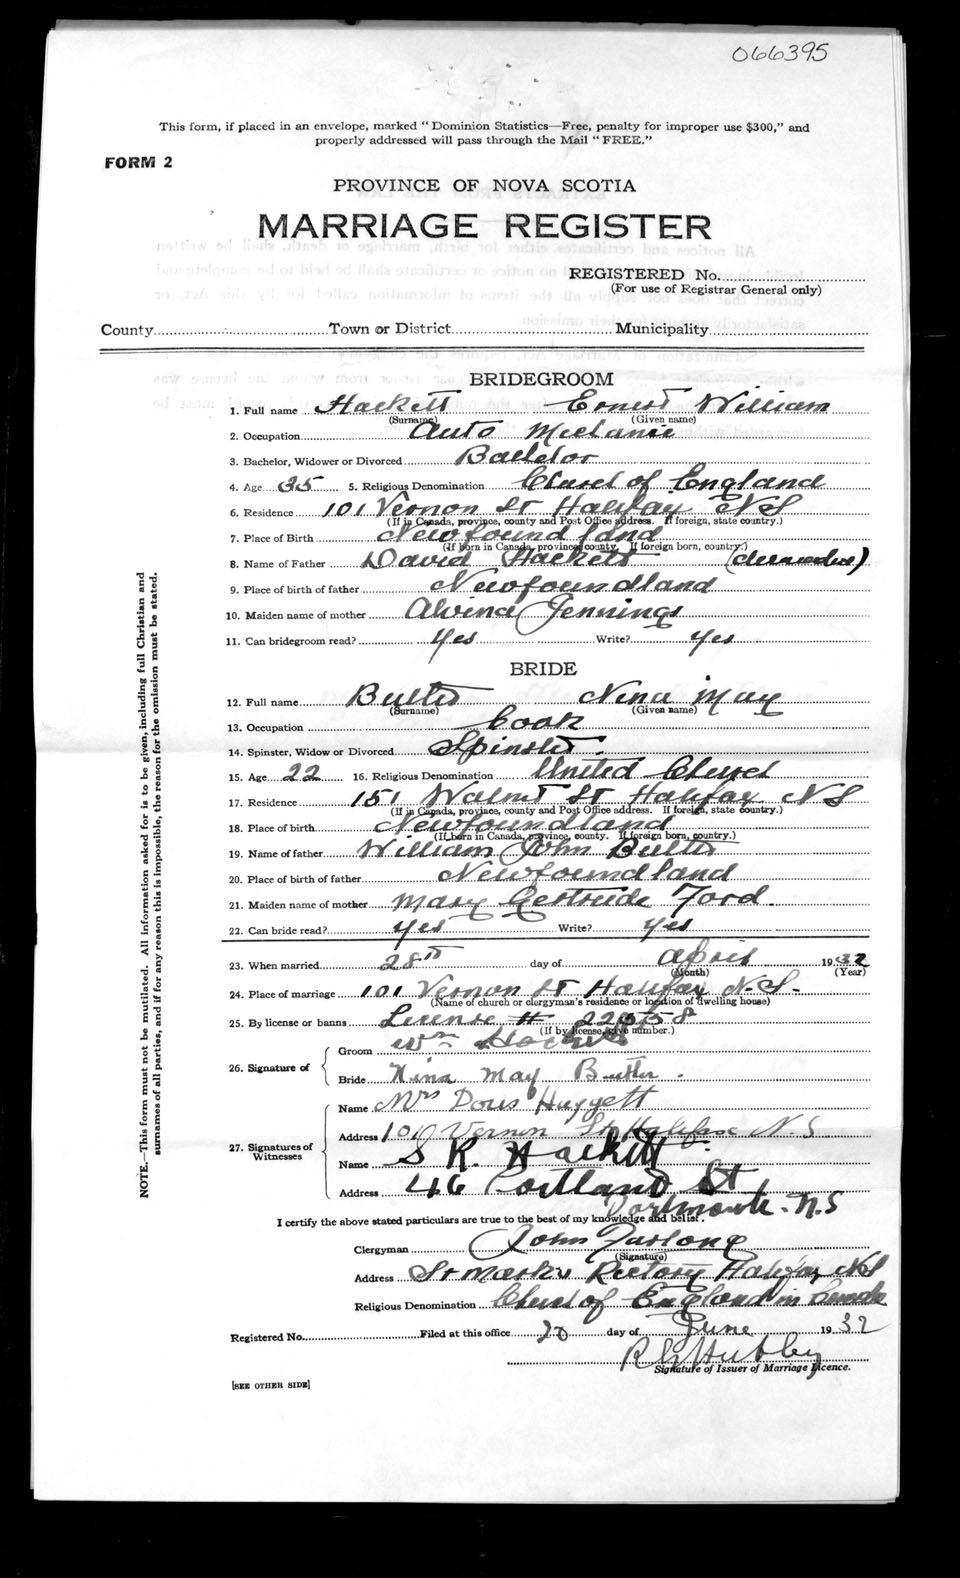 066395
This form, if placed in an envelope, marked "Dominion Statistics—Free, penalty for improper use $300," and
properly addressed will pass through the Mail "FREE."
FORM 2
PROVINCE OF NOVA SCOTIA
MARRIAGE REGISTER
REGISTERED No.
(For use of Registrar General only)
County Town or District Municipality
BRIDEGROOM
1. Full name Hackett Ernest William
(Surname) (Given name)
2. Occupation Auto Mechanic
3. Bachelor, Widower or Divorced Bachelor
4. Age 35 5. Religious Denomination Church of England
6. Residence 101 Vernon St Halifax NS
(If in Canada, province, county and Post Office address. If foreign, state country.)
7. Place of Birth Newfoundland
(If born in Canada, province, county. If foreign born, country.)
8. Name of Father David Hackett (deceased)
9. Place of birth of father Newfoundland
10. Maiden name of mother Alvina Jennings
11. Can bridegroom read? Yes Write? Yes
BRIDE
12. Full name Butler Nina May
(Surname) (Given name)
13. Occupation Cook
14. Spinster, Widow or Divorced Spinster.
15. Age 22 16. Religious Denomination United Church
17. Residence 151 Walnut St Halifax NS
(If in Canada, province, county and Post Office address. If foreign, state country.)
18. Place of birth Newfoundland
(If born in Canada, province, county. If foreign born, country.)
19. Name of father William John Butler
20. Place of birth of father Newfoundland
21. Maiden name of mother Mary Gertrude Ford.
22. Can bride read? Yes Write? Yes
23. When married 28th day of April 1932
(Month) (Year)
24. Place of marriage 101 Vernon St Halifax N.S.
(Name of church or clergyman's residence or location of dwelling house)
25. By license or banns License #
(If by license, give number.)
26. Signature of
Groom Wm Hackett
Bride Nina May Butler.
27. Signatures of Witnesses
Name Mrs Doris Huggett
Address 101 Vernon St Halifax N.S
Name S R. Hackett.
Address 46 Portland St
Dartmouth. N.S
I certify the above stated particulars are true to the best of my knowledge and belief.
Clergyman John Furlong
(Signature)
Address St Mark's Rectory Halifax NS
Religious Denomination Church of England in Canada
Registered No. Filed at this office 20 day of June 1932
Signature of Issuer of Marriage Licence.
[SEE OTHER SIDE]
NOTE.—This form must not be mutilated. All information asked for is to be given, including full Christian and
surnames of all parties, and if for any reason this is impossible, the reason for the omission must be stated.